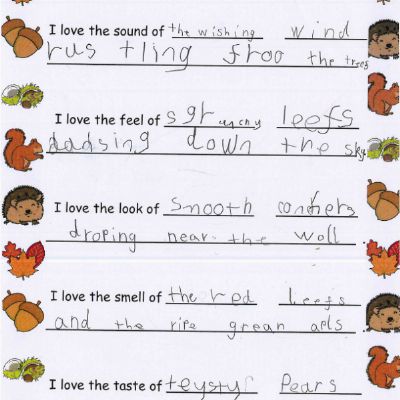 I love the sound of the wishing wind
rustling froo the trees
I love the feel of sgrunchy leefs
dadsing down the sky
I love the look of smooth conkers
droping near the woll
I love the smell of the red leefs
and the ripe grean apls
I love the taste of teystys Pears